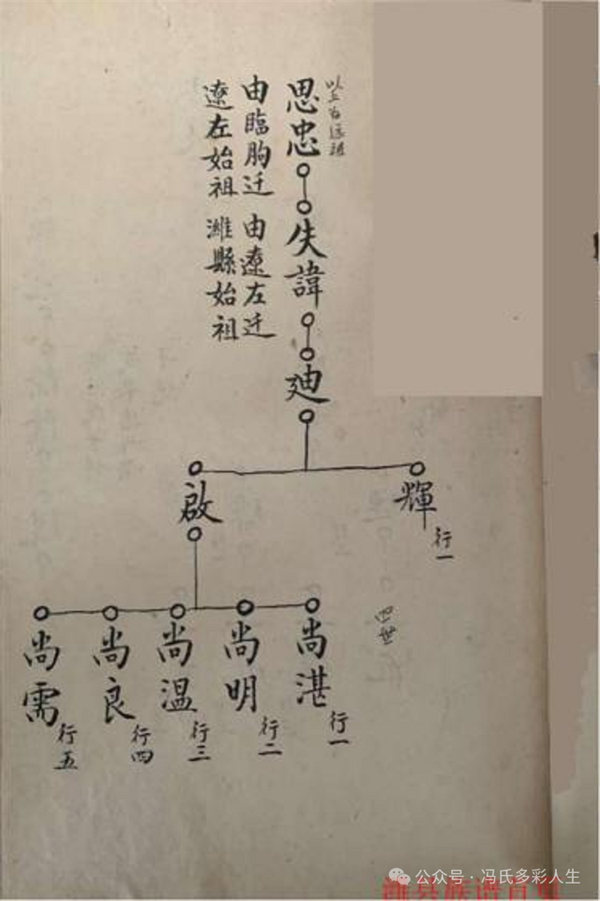 以上为远祖
思忠
由臨朐迁
遼左始祖
失諱
由遼左迁
濰縣始祖
迪
輝
行一
啟
四世
尚湛
行一
尚明
行二
尚温
行三
尚良
行四
尚需
行五
公众号·冯氏多彩人生